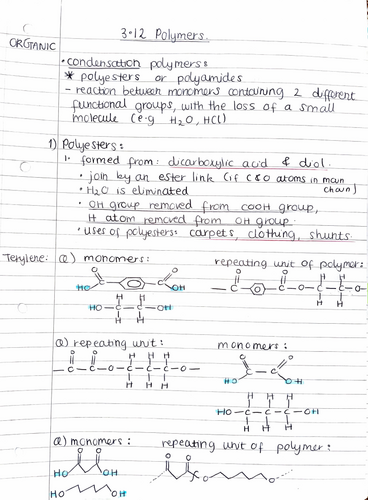 3.12 Polymers.
ORGANIC
• condensation polymers:
* polyesters or polyamides
- reaction between monomers containing 2 different
functional groups, with the loss of a small
molecule (e.g H2O, HCl)
1) Polyesters:
1. formed from: dicarboxylic acid & diol.
• join by an ester link (if C & O atoms in main
chain)
• H2O is eliminated
• OH group removed from COOH group,
H atom removed from OH group.
• uses of polyesters: carpets, clothing, shunts.
Terylene: Q) monomers: repeating unit of polymer:
O O O O H H
HO OH — C C — O — C — C — O —
H H H H
HO — C — C — OH
H H
Q) repeating unit: monomers:
O O H H H O O
— C — C — O — C — C — C — O — C — C
H H H HO OH
H H H
HO — C — C — C — OH
H H H
Q) monomers: repeating unit of polymer:
O O O O
HO OH O O
HO OH